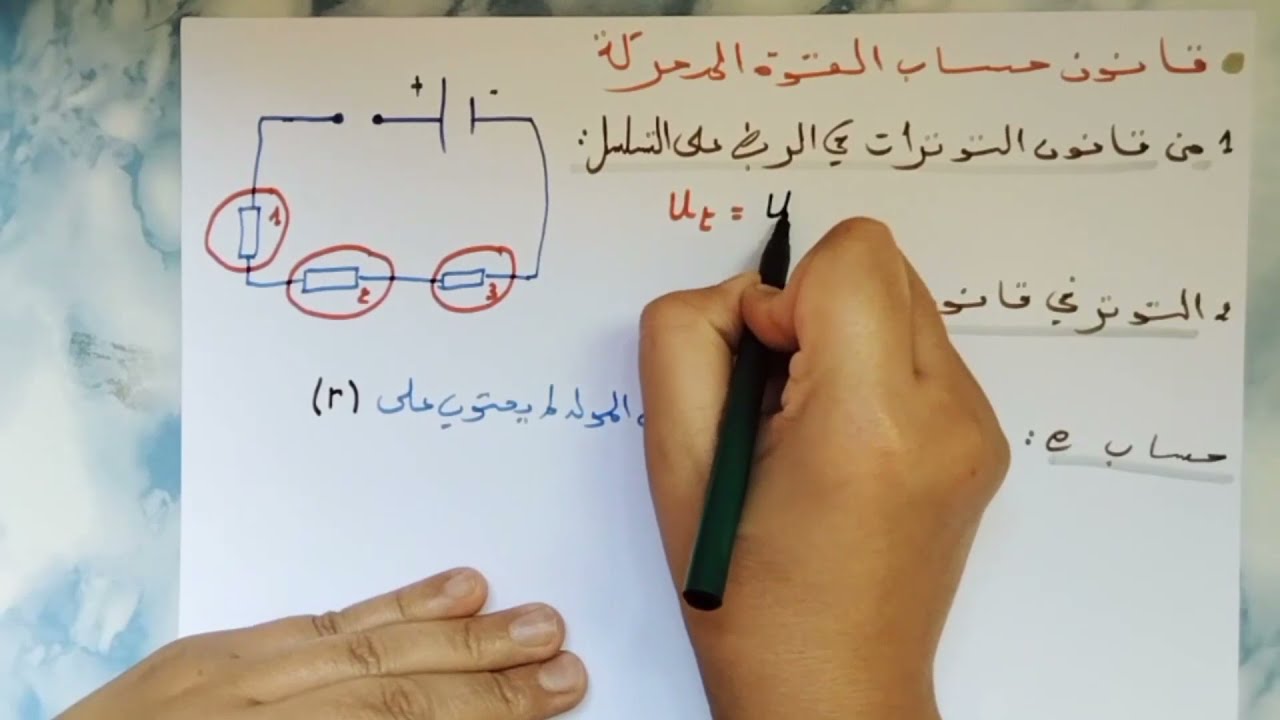 قانون حساب القوة المحركة
1 من قانون التوترات في الربط على التسلسل:
Ut = U
2 التوتر في قانو
المولد لا يحتوي على (r)
حساب e:
+ -
1
2
3